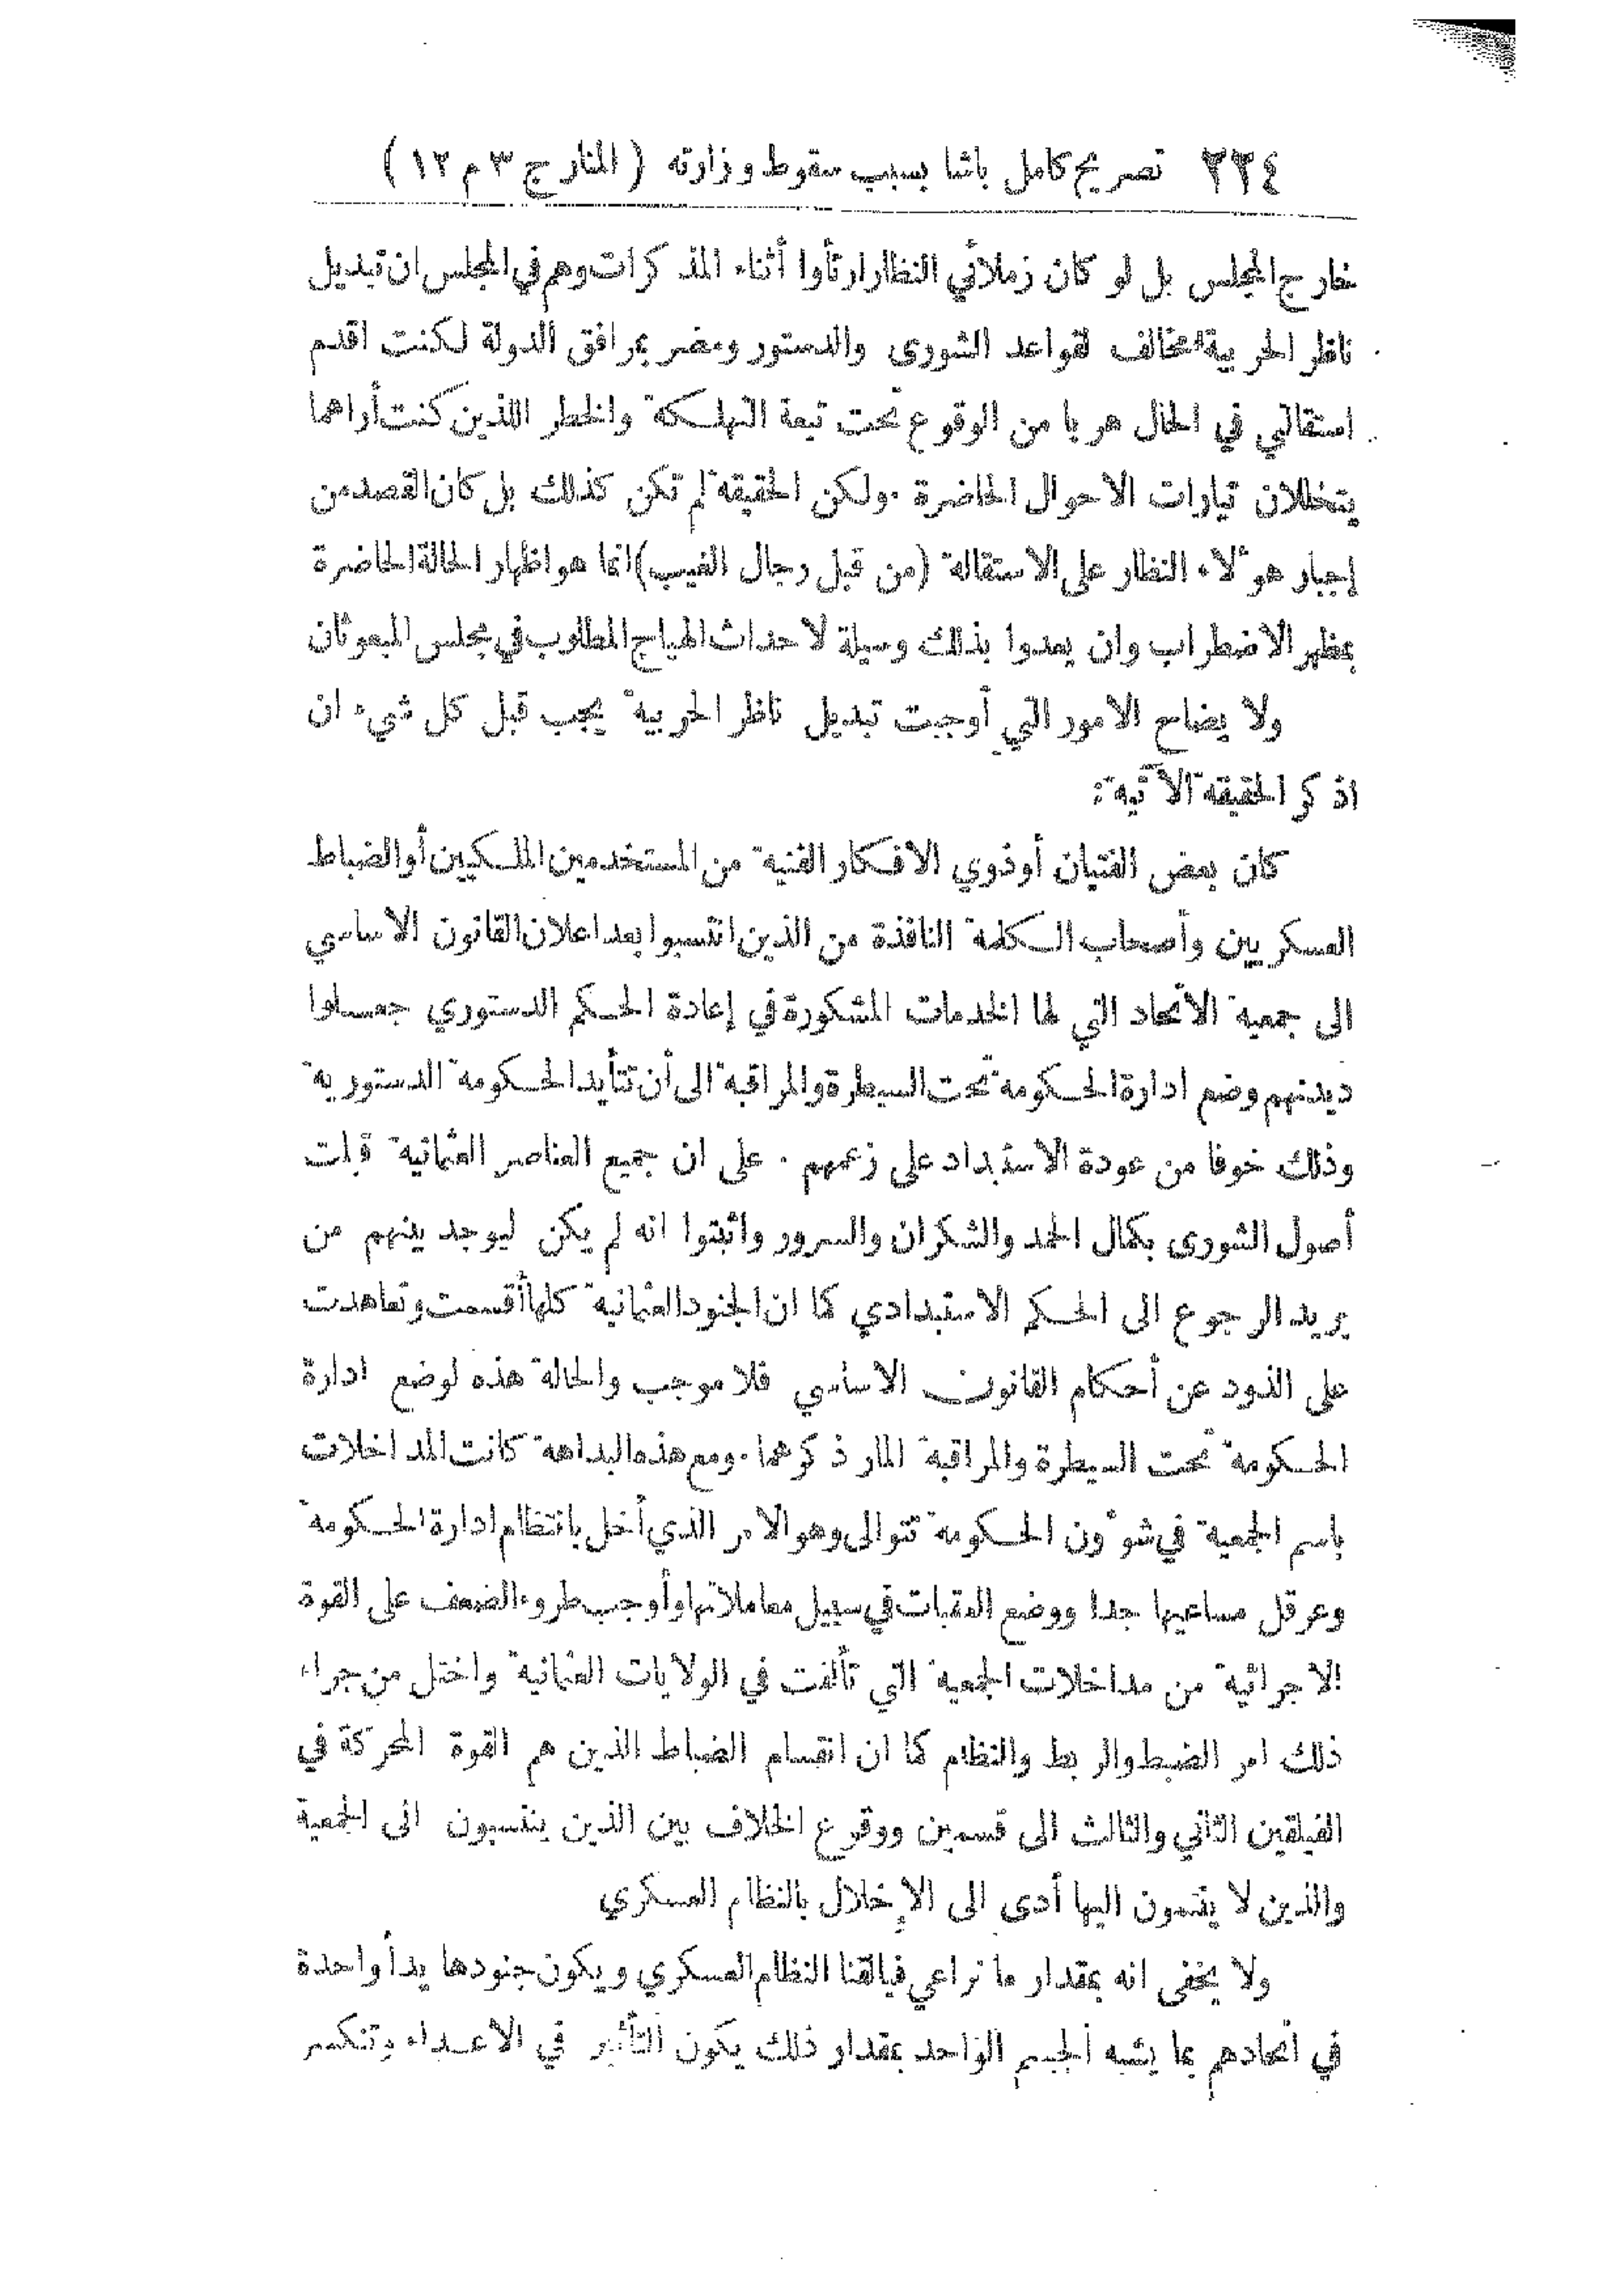 ٢٢٤ تصريح كامل باشا بسبب سقوط وزارته ( المنار ج ٣ م ١٢ )
خارج المجلس بل لو كان زملائي النظار ارتأوا أثناء المذكرات وهم في المجلس ان تبديل
ناظر الحربية مخالف لقواعد الشورى والدستور ومضر بمرافق الدولة لكنت اقدم
استقالتي في الحال هربا من الوقوع تحت تبعة التهلكة والخطر اللذين كنت أراهما
يتخللان تيارات الاحوال الحاضرة ٠ ولكن الحقيقة لم تكن كذلك بل كان القصد من
إجبار هؤلاء النظار على الاستقالة (من قبل رجال الغيب) انما هو اظهار الحالة الحاضرة
بمظهر الاضطراب وان يعدوا بذلك وسيلة لاحداث الهياج المطلوب في مجلس المبعوثان
ولا يضاح الامور التي أوجبت تبديل ناظر الحربية يجب قبل كل شيء ان
اذكر الحقيقة الآتية :
كان بعض الفتيان أوذوي الافكار الفنية من المستخدمين الملكيين أو الضباط
العسكريين وأصحاب الكلمة النافذة من الذين انتسبوا بعد اعلان القانون الاساسي
الى جمعية الاتحاد التي لها الخدمات المشكورة في إعادة الحكم الدستوري جعلوا
ديدنهم وضع ادارة الحكومة تحت السيطرة والمراقبة الى أن تتأيد الحكومة الدستورية
وذلك خوفا من عودة الاستبداد على زعمهم ٠ على ان جميع العناصر العثمانية قبلت
أصول الشورى بكمال الحمد والشكران والسرور واثبتوا انه لم يكن ليوجد بينهم من
يريد الرجوع الى الحكم الاستبدادي كما ان الجنود العثمانية كلها أقسمت وتعاهدت
على الذود عن أحكام القانون الاساسي فلا موجب والحالة هذه لوضع ادارة
الحكومة تحت السيطرة والمراقبة المار ذكرهما ٠ ومع هذه البداهة كانت المداخلات
باسم الجمعية في شؤون الحكومة تتوالى وهو الامر الذي أخل بانتظام ادارة الحكومة
وعرقل مساعيها جدا ووضع العقبات في سبيل معاملاتها وأوجب طروء الضعف على القوة
الاجرائية من مداخلات الجمعية التي تألفت في الولايات العثمانية واختل من جراء
ذلك امر الضبط والربط والنظام كما ان انقسام الضباط الذين هم القوة المحركة في
الفيلقين الثاني والثالث الى قسمين ووقوع الخلاف بين الذين ينتسبون الى الجمعية
والذين لا ينتمون اليها أدى الى الإخلال بالنظام العسكري
ولا يخفى انه بمقدار ما تراعي فيالقنا النظام العسكري ويكون جنودها يدأ واحدة
في اتحادهم بما يشبه الجسم الواحد بمقدار ذلك يكون التأثير في الاعداء وتنكسر